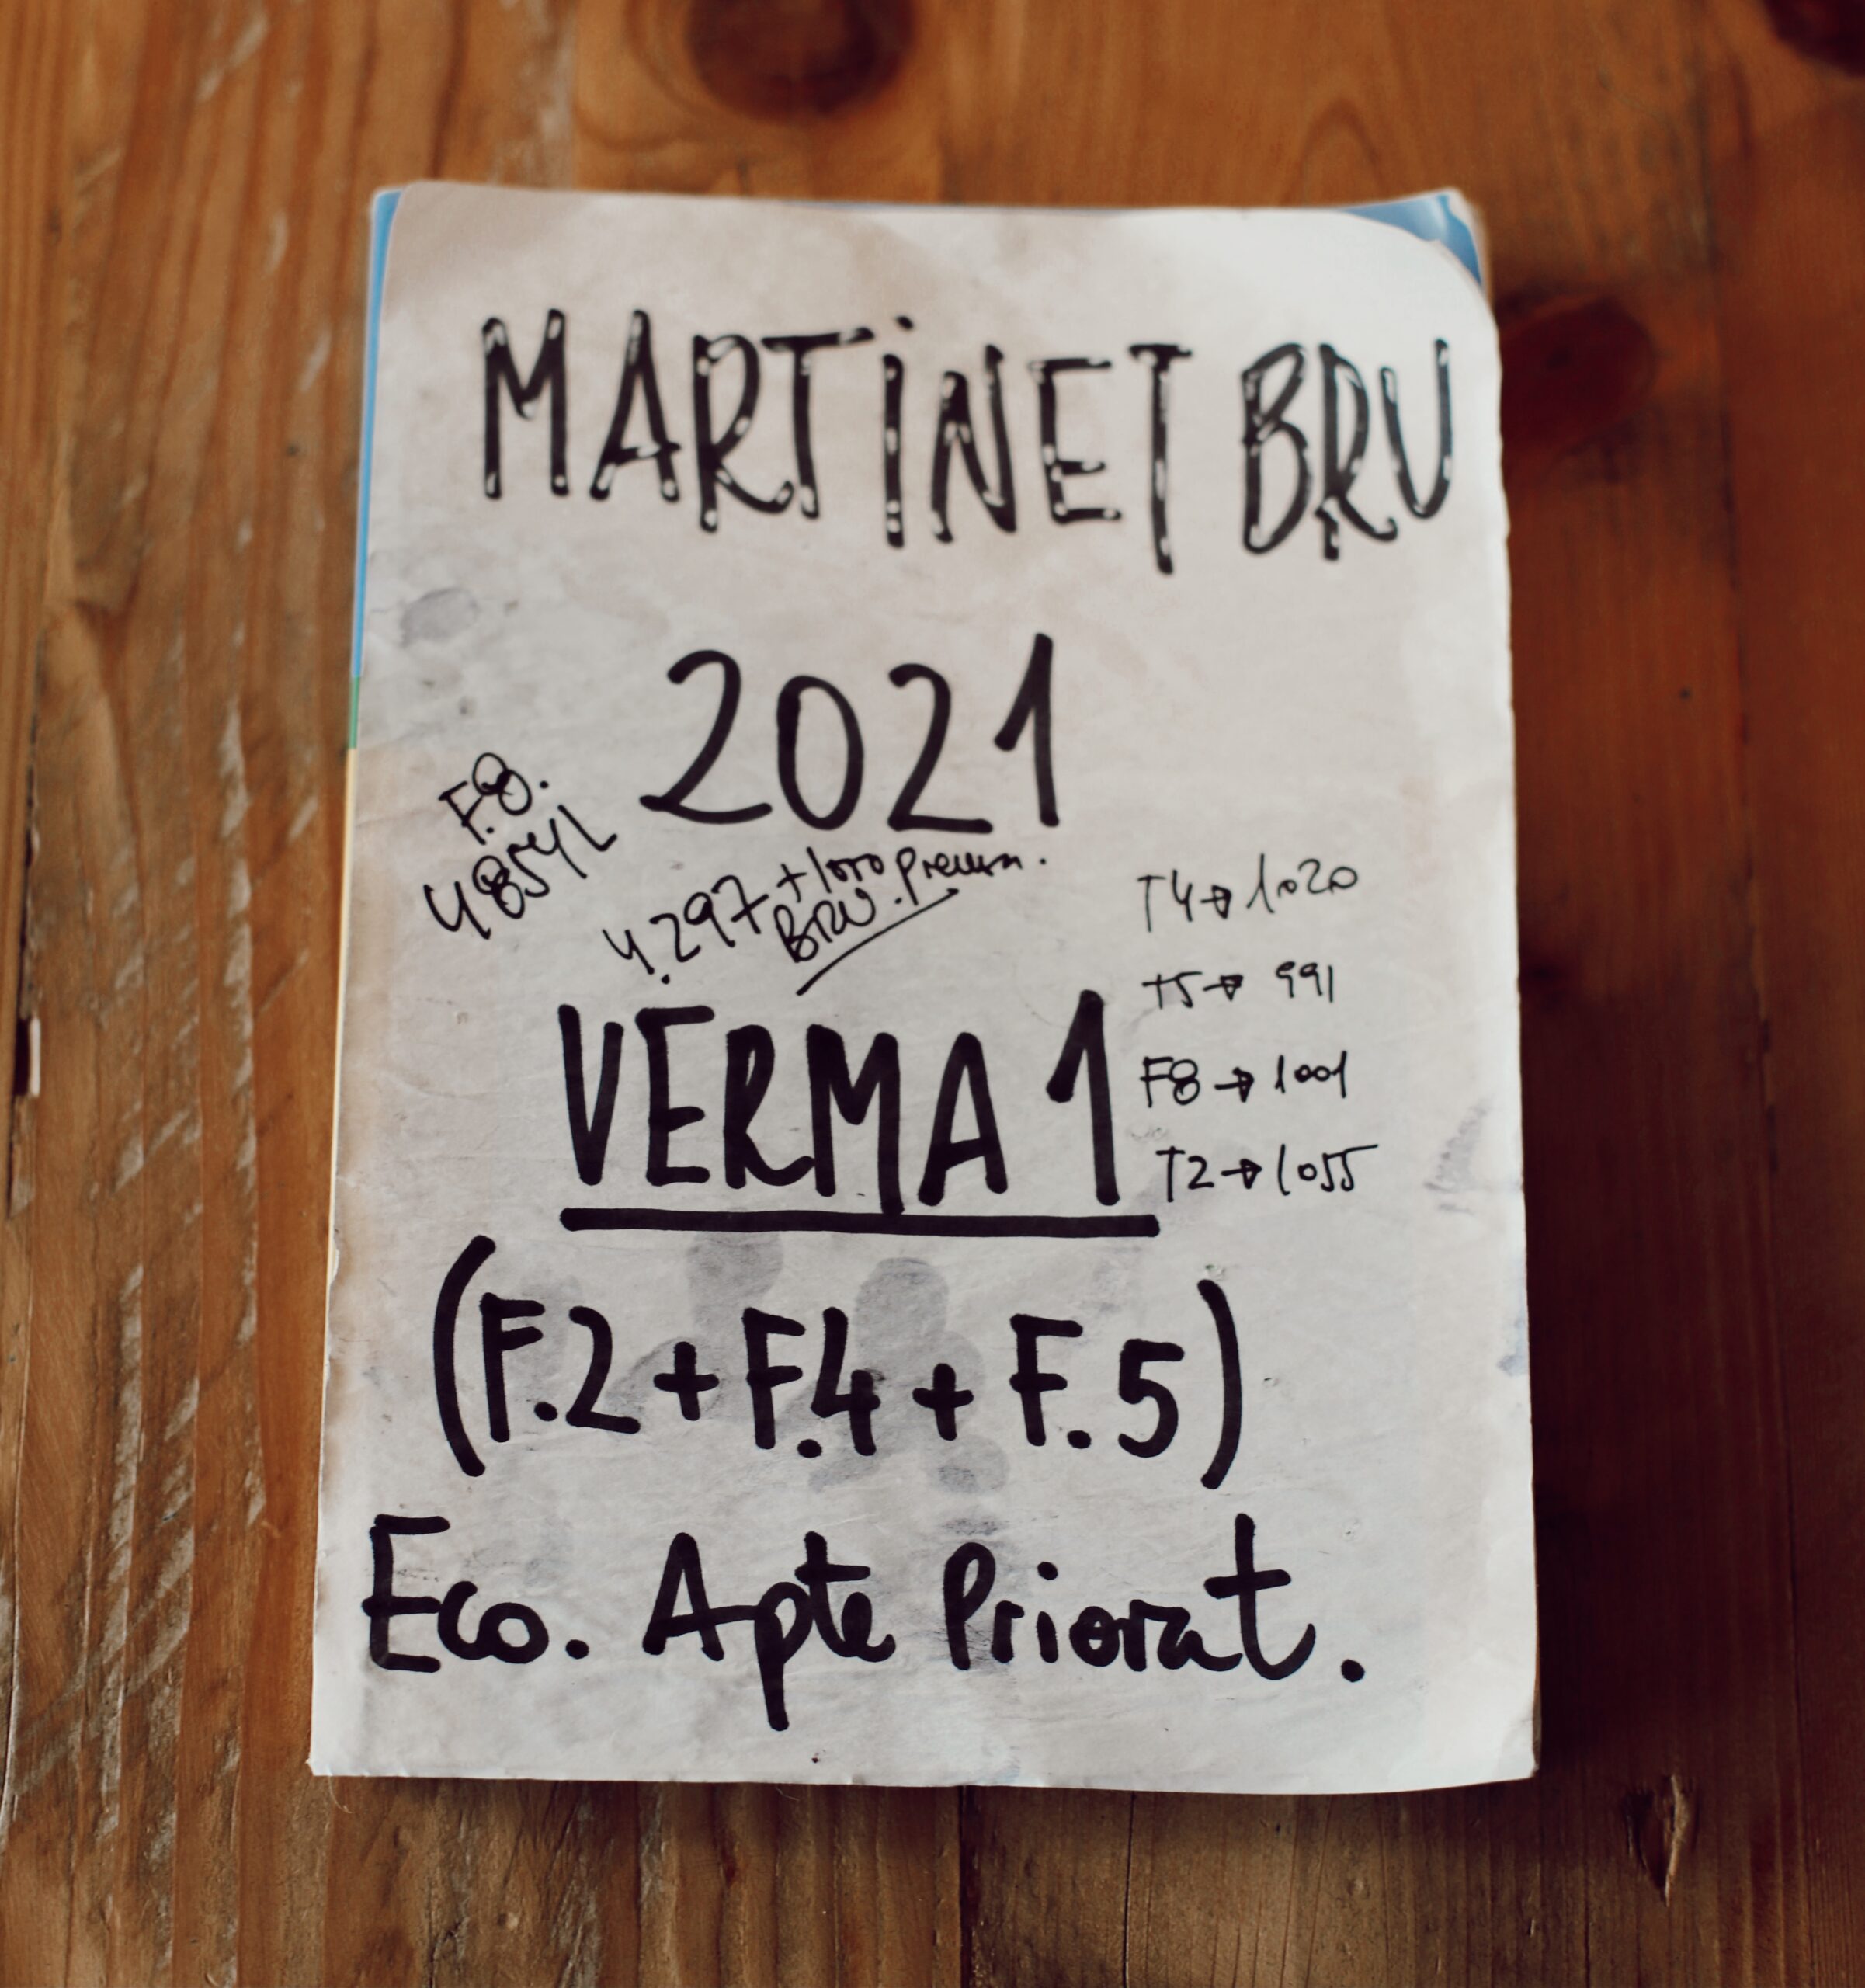 MARTINET BRU
2021
F.8.
4854L
4.297 + 1000 premsa.
BRU.
T4→1020
T5→ 991
F8→1001
T2→1055
VERMA 1
(F.2 + F.4 + F.5)
Eco. Apte Priorat.